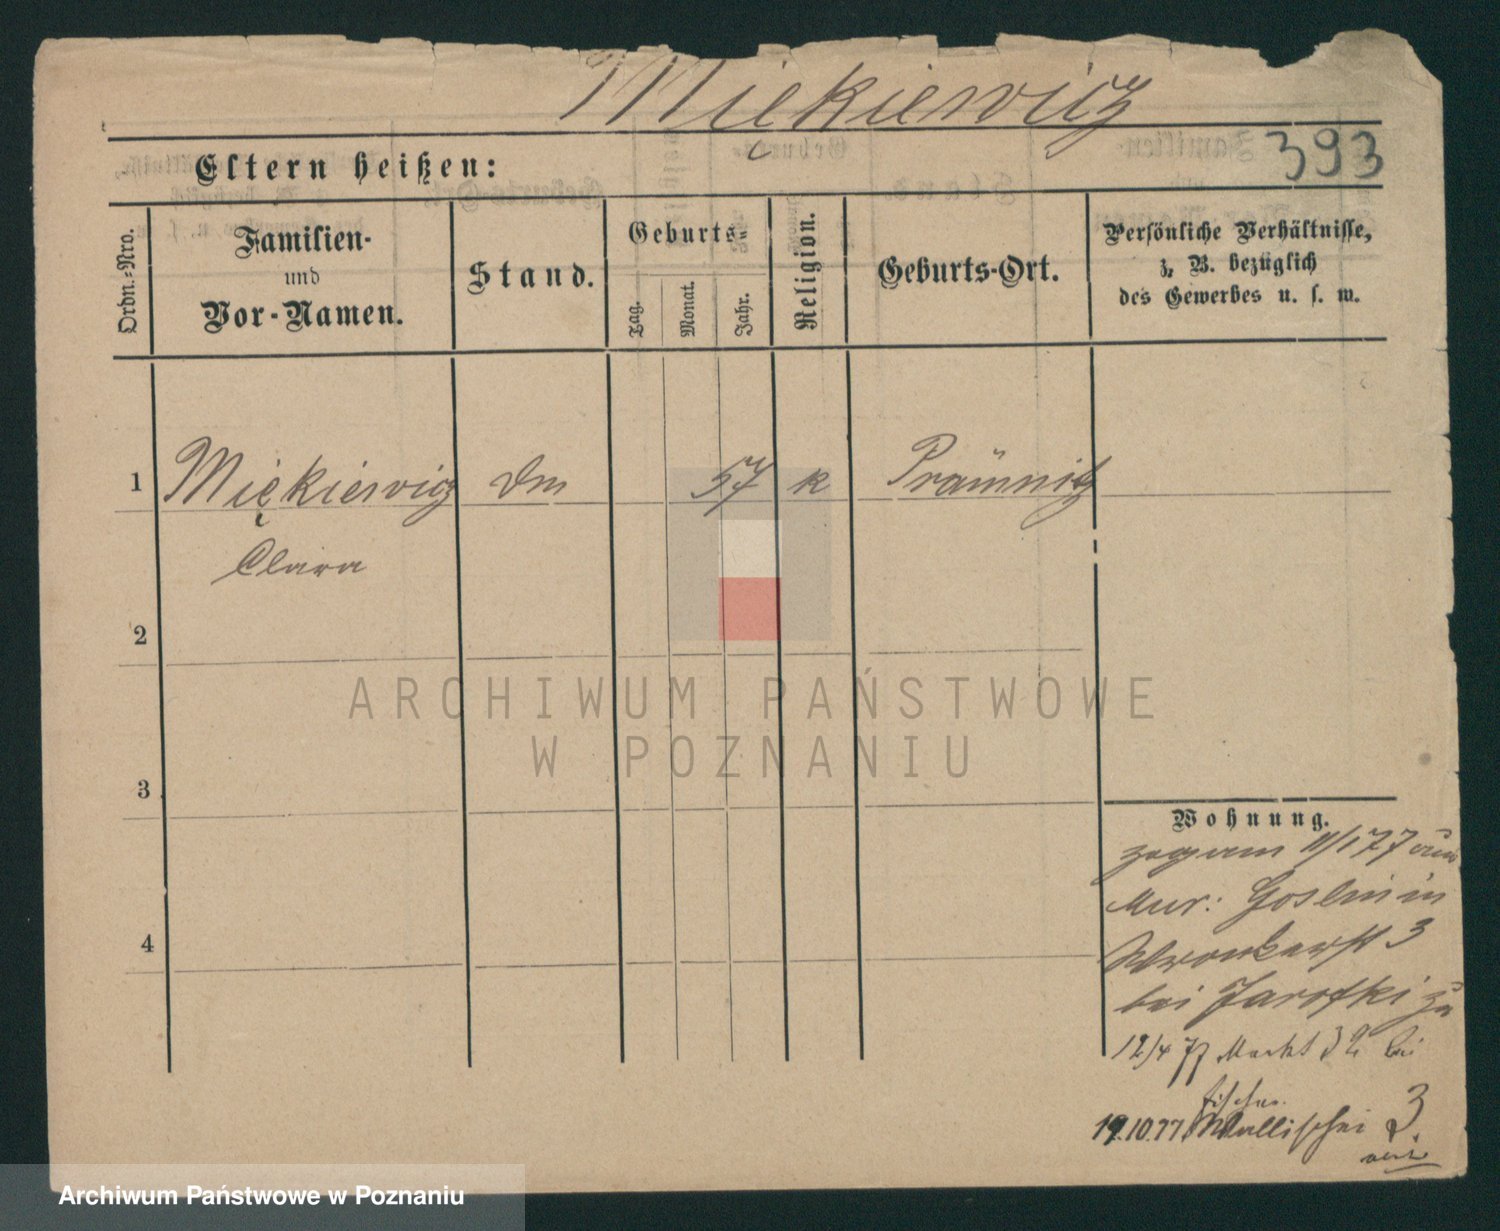 Miękiewicz
393
Eltern heißen:
Ordn.-Nro.
Familien-
und
Vor-Namen.
Stand.
Geburts-
Tag.
Monat.
Jahr.
Religion.
Geburts-Ort.
Persönliche Verhältnisse,
z. B. bezüglich
des Gewerbes u. s. w.
1 Miękiewicz 57 k
Clara
2
3
4
Wohnung.
zog am 11/1 77 aus
Mur: Goslin in
Wronkerst 3
bei Jarotzki zu
12/4 77 Markt 32 bei
Fischer.
19.10.77 Wallischei 3
ARCHIWUM PAŃSTWOWE
W POZNANIU
Archiwum Państwowe w Poznaniu